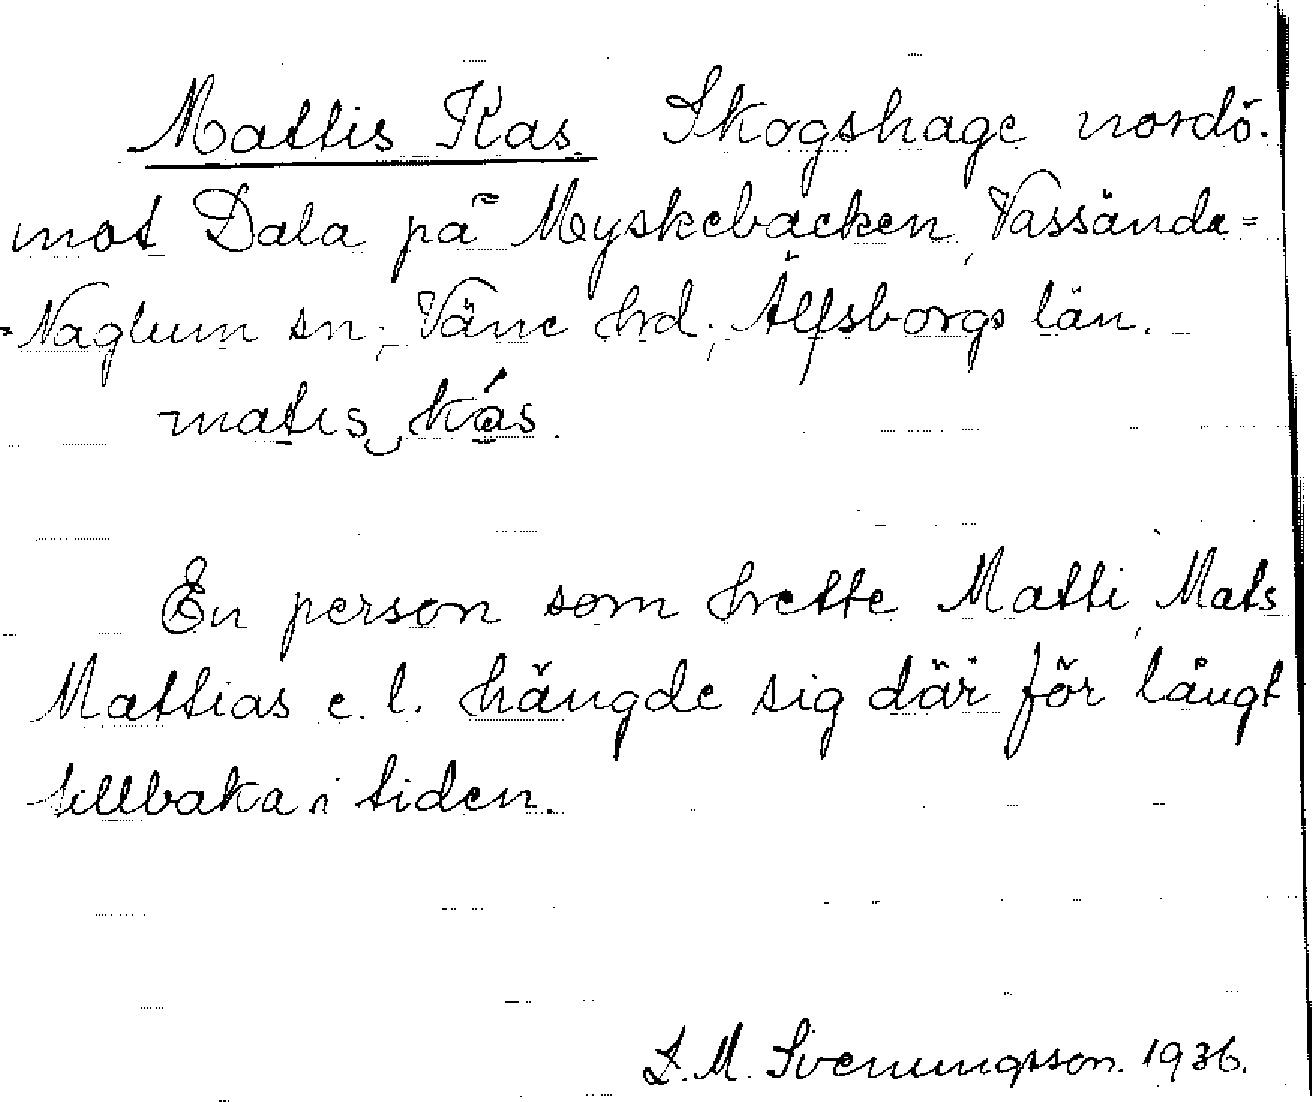 Mattis Kas. Skogshage nordö.
mot Dala på Myskebacken, Vassända=
=Naglum sn, Väne hrd, Älfsborgs län.
matis kás.
En person som hette Matti, Mats
Mattias e. l. hängde sig där för långt
tillbaka i tiden.
L. M. Svenungsson. 1936.